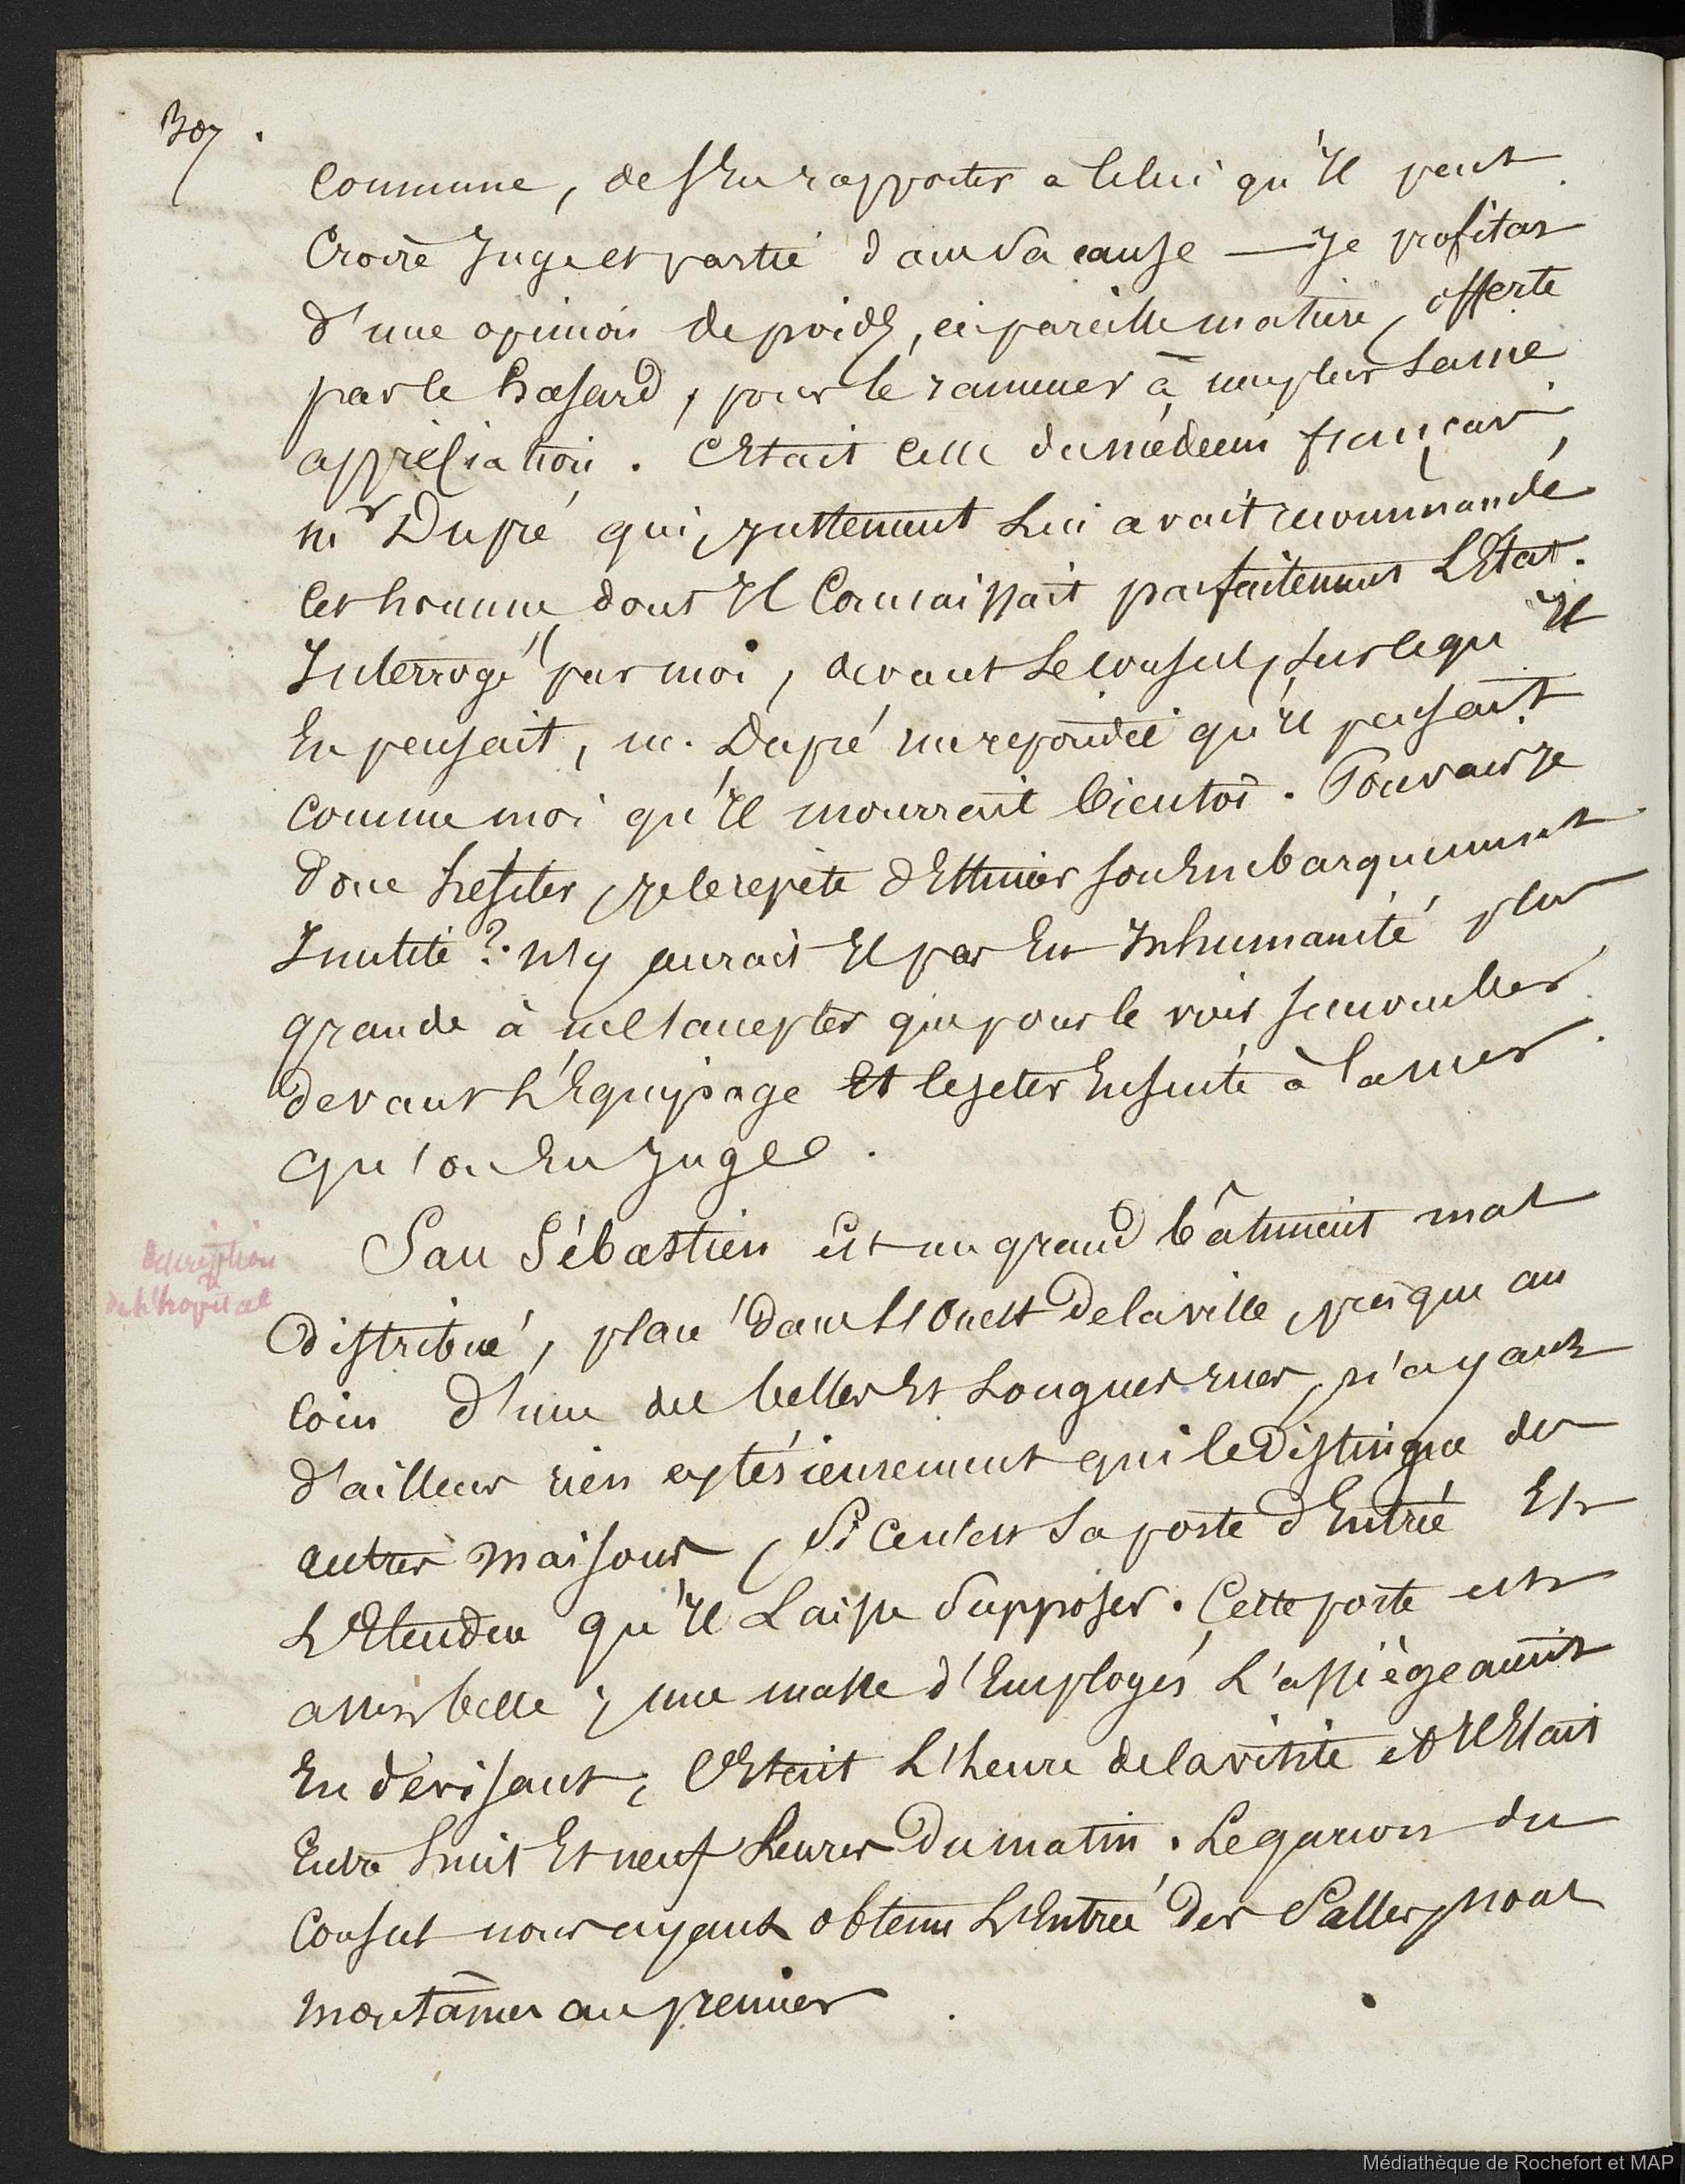 307.
Commune, de s'En rapporter a Celui qu'Il peut
Croire Juge et partie dans Sa cause — Je profitas
d'une opinion de poids, en pareille matiere, offerte
par le hasard, pour le ramener à une plus Saine
appréciation. C'Etait Celle du médecin français,
mr Dupré qui, justement Lui avait recommandé
Cet homme dont Il Connaissait parfaitement L'Etat.
Interrogé par moi, devant Le consul, Sur ce qu'Il
En pensait, m. Dupré me repondit qu'Il pensait
comme moi qu'Il mourrait bientot. Pouvais Je
donc hesiter, je le repète d'Estimer son Embarquement
Inutile ? N'y aurait Il pas Eu Inhumanité plus
grande à ne l'accepter que pour le voir
devant L'Equipage Et le jeter Ensuite à la mer.
Qu'on En Juge.
description
de l'hopital
San Sébastien est un grand bâtiment mal
distribué, placé dans L'Ouest de la ville, presque au
coin d'une des belles Et Longues rues, n'ayant
d'ailleurs rien extérieurement qui le distingue des
autres maisons, Si Ce n'est Sa porte d'Entrée Et
L'Etendue qu'Il Laisse Supposer. Cette porte est
assez belle ; une masse d'Employés L'assiégeaient
En devisant ; C'Etait L'heure de la visite et Il Etait
Entre huit Et neuf heures du matin. Le garçon du
Consul nous ayant obtenu L'Entrée des Salles, nous
montâmes au premier
Médiathèque de Rochefort et MAP